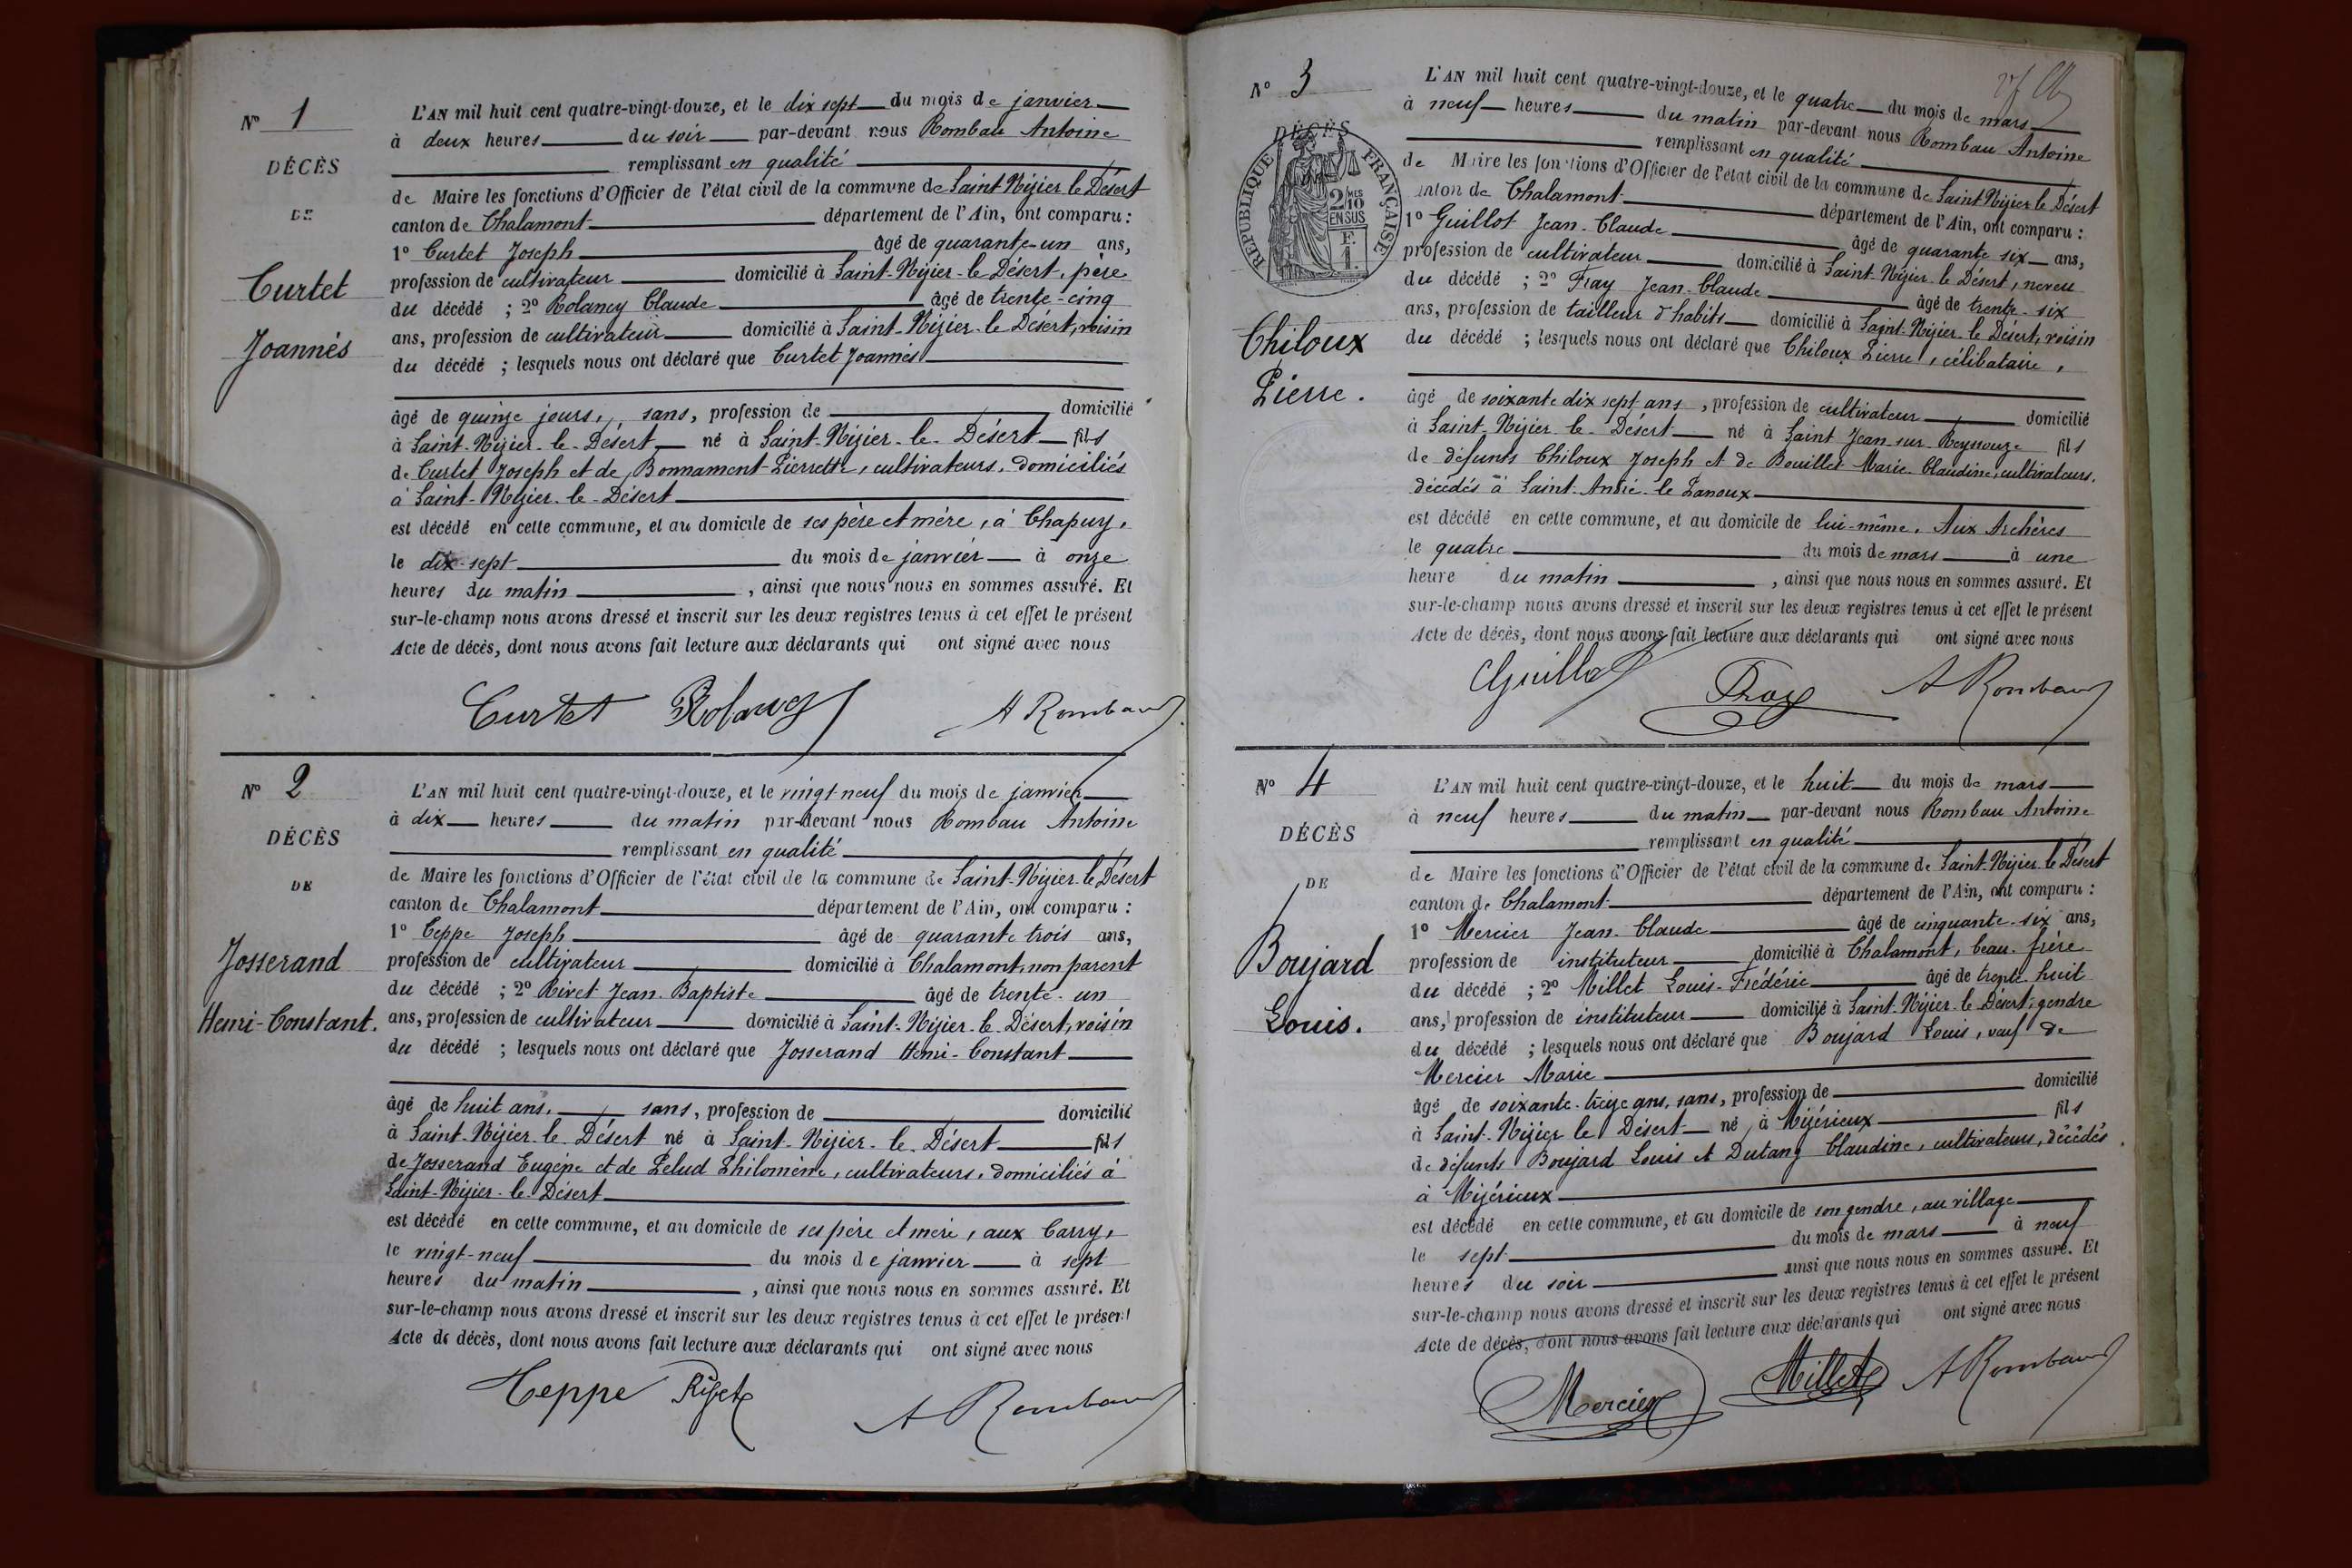 N° 1
DÉCÈS
DE
Curtet
Joannès
L'AN mil huit cent quatre-vingt-douze, et le dix sept du mois de janvier
à deux heures du soir par-devant nous Rombau Antoine
remplissant en qualité
de Maire les fonctions d'Officier de l'état civil de la commune de Saint Nizier le Désert
canton de Chalamont département de l'Ain, ont comparu :
1° Curtet Joseph âgé de quarante-un ans,
profession de cultivateur domicilié à Saint-Nizier-le Désert, père
du décédé ; 2° Rolancy Claude âgé de trente-cinq
ans, profession de cultivateur domicilié à Saint-Nizier-le Désert, voisin
du décédé ; lesquels nous ont déclaré que Curtet Joannès
âgé de quinze jours, sans, profession de domicilié
à Saint-Nizier-le-Désert né à Saint-Nizier-le-Désert fils
de Curtet Joseph et de Bonnament Pierrette, cultivateurs, domiciliés
à Saint-Nizier-le-Désert
est décédé en cette commune, et au domicile de ses père et mère, à Chapuy,
le dix-sept du mois de janvier à onze
heures du matin , ainsi que nous nous en sommes assuré. Et
sur-le-champ nous avons dressé et inscrit sur les deux registres tenus à cet effet le présent
Acte de décès, dont nous avons fait lecture aux déclarants qui ont signé avec nous
Curtet Rolancy A Rombau
N° 2
DÉCÈS
DE
Josserand
Henri-Constant.
L'AN mil huit cent quatre-vingt-douze, et le vingt-neuf du mois de janvier
à dix heures du matin par-devant nous Rombau Antoine
remplissant en qualité
de Maire les fonctions d'Officier de l'état civil de la commune de Saint-Nizier-le Désert
canton de Chalamont département de l'Ain, ont comparu :
1° Ceppe Joseph âgé de quarante trois ans,
profession de cultivateur domicilié à Chalamont, non parent
du décédé ; 2° Rivet Jean-Baptiste âgé de trente-un
ans, profession de cultivateur domicilié à Saint-Nizier-le-Désert, voisin
du décédé ; lesquels nous ont déclaré que Josserand Henri-Constant
âgé de huit ans, sans, profession de domicilié
à Saint-Nizier-le-Désert né à Saint-Nizier-le-Désert fils
de Josserand Eugène et de Pelud Philomène, cultivateurs, domiciliés à
Saint-Nizier-le-Désert
est décédé en cette commune, et au domicile de ses père et mère, aux Carry,
le vingt-neuf du mois de janvier à sept
heures du matin , ainsi que nous nous en sommes assuré. Et
sur-le-champ nous avons dressé et inscrit sur les deux registres tenus à cet effet le présent
Acte de décès, dont nous avons fait lecture aux déclarants qui ont signé avec nous
Ceppe Rivet A Rombau
N° 3
DÉCÈS
RÉPUBLIQUE FRANÇAISE
2 MES 10 EN SUS
F. 1.
Chiloux
Pierre.
L'AN mil huit cent quatre-vingt-douze, et le quatre du mois de mars
à neuf heures du matin par-devant nous Rombau Antoine
remplissant en qualité
de Maire les fonctions d'Officier de l'état civil de la commune de Saint Nizier le Désert
canton de Chalamont département de l'Ain, ont comparu :
1° Guillot Jean-Claude âgé de quarante six ans,
profession de cultivateur domicilié à Saint-Nizier-le Désert, neveu
du décédé ; 2° Fray Jean-Claude âgé de trente-six
ans, profession de tailleur d'habits domicilié à Saint-Nizier-le Désert, voisin
du décédé ; lesquels nous ont déclaré que Chiloux Pierre, célibataire,
âgé de soixante dix sept ans, profession de cultivateur domicilié
à Saint-Nizier-le-Désert né à Saint Jean sur Reyssouze fils
de défunts Chiloux Joseph et de Bouillet Marie-Claudine, cultivateurs,
décédés à Saint-André-le Panoux
est décédé en cette commune, et au domicile de lui-même, Aux Archères
le quatre du mois de mars à une
heure du matin , ainsi que nous nous en sommes assuré. Et
sur-le-champ nous avons dressé et inscrit sur les deux registres tenus à cet effet le présent
Acte de décès, dont nous avons fait lecture aux déclarants qui ont signé avec nous
Guillot Fray A Rombau
N° 4
DÉCÈS
DE
Boujard
Louis.
L'AN mil huit cent quatre-vingt-douze, et le huit du mois de mars
à neuf heures du matin par-devant nous Rombau Antoine
remplissant en qualité
de Maire les fonctions d'Officier de l'état civil de la commune de Saint-Nizier le Désert
canton de Chalamont département de l'Ain, ont comparu :
1° Mercier Jean-Claude âgé de cinquante-six ans,
profession de instituteur domicilié à Chalamont, beau-frère
du décédé ; 2° Millet Louis-Frédéric âgé de trente-huit
ans, profession de instituteur domicilié à Saint-Nizier-le Désert, gendre
du décédé ; lesquels nous ont déclaré que Boujard Louis, veuf de
Mercier Marie
âgé de soixante-treize ans, sans, profession de domicilié
à Saint-Nizier le Désert né à Mizérieux fils
de défunts Boujard Louis et Dutang Claudine, cultivateurs, décédés
à Mizérieux
est décédé en cette commune, et au domicile de son gendre, au village
le sept du mois de mars à neuf
heures du soir ainsi que nous nous en sommes assuré. Et
sur-le-champ nous avons dressé et inscrit sur les deux registres tenus à cet effet le présent
Acte de décès, dont nous avons fait lecture aux déclarants qui ont signé avec nous
Mercier Millet A Rombau